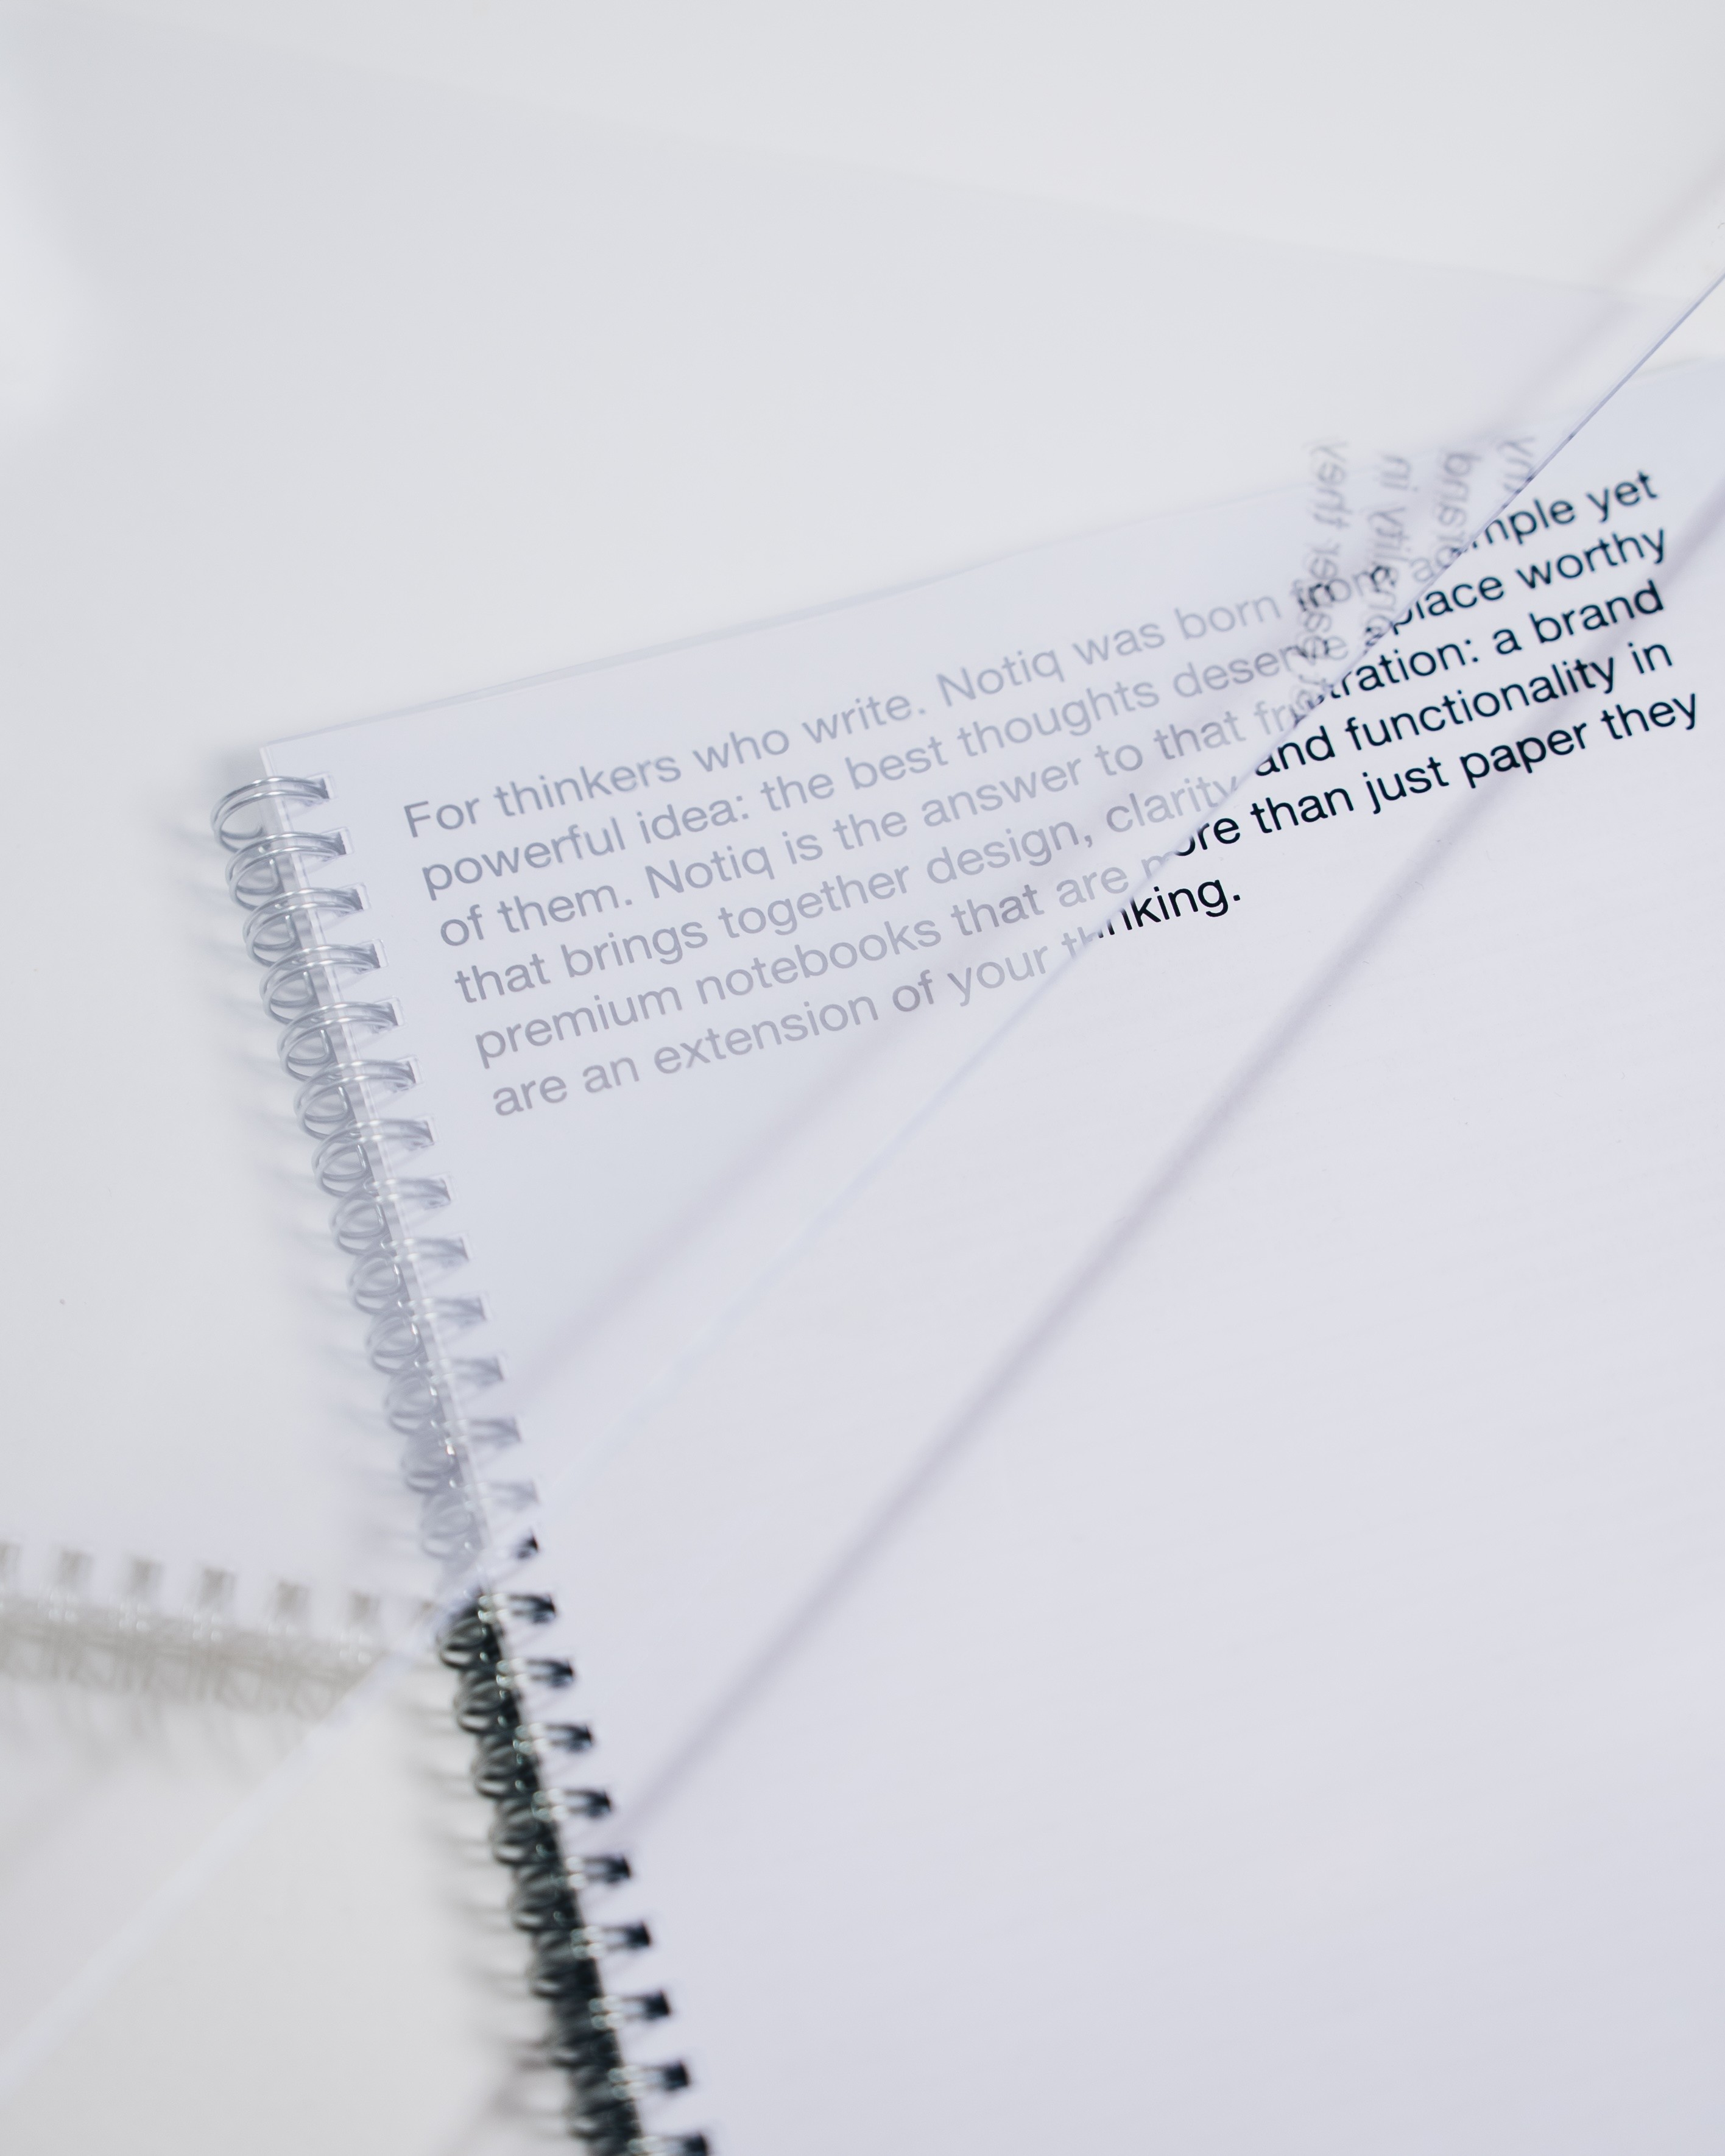 For thinkers who write. Notiq was born from a simple yet
powerful idea: the best thoughts deserve a place worthy
of them. Notiq is the answer to that frustration: a brand
that brings together design, clarity and functionality in
premium notebooks that are more than just paper they
are an extension of your thinking.